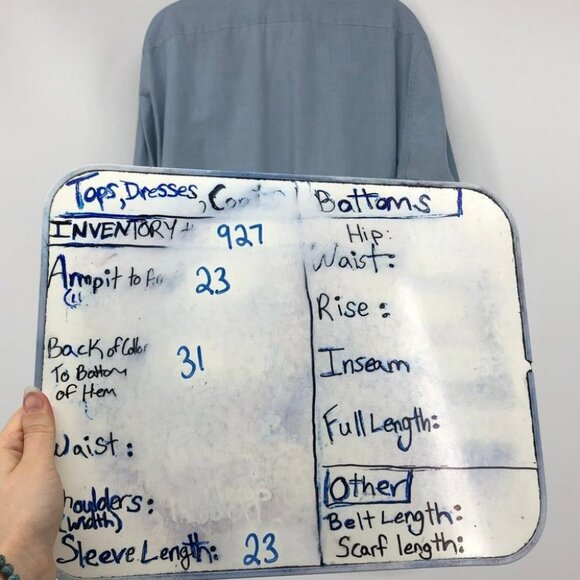 Tops, Dresses,
INVENTORY # 927
Armpit to 23
Back of Collar 31
To Bottom
of Hem
Waist:
houlders:
(width)
Sleeve Length: 23
Bottoms
Hip:
Waist:
Rise:
Inseam
Full Length:
Other
Belt Length:
Scarf length: